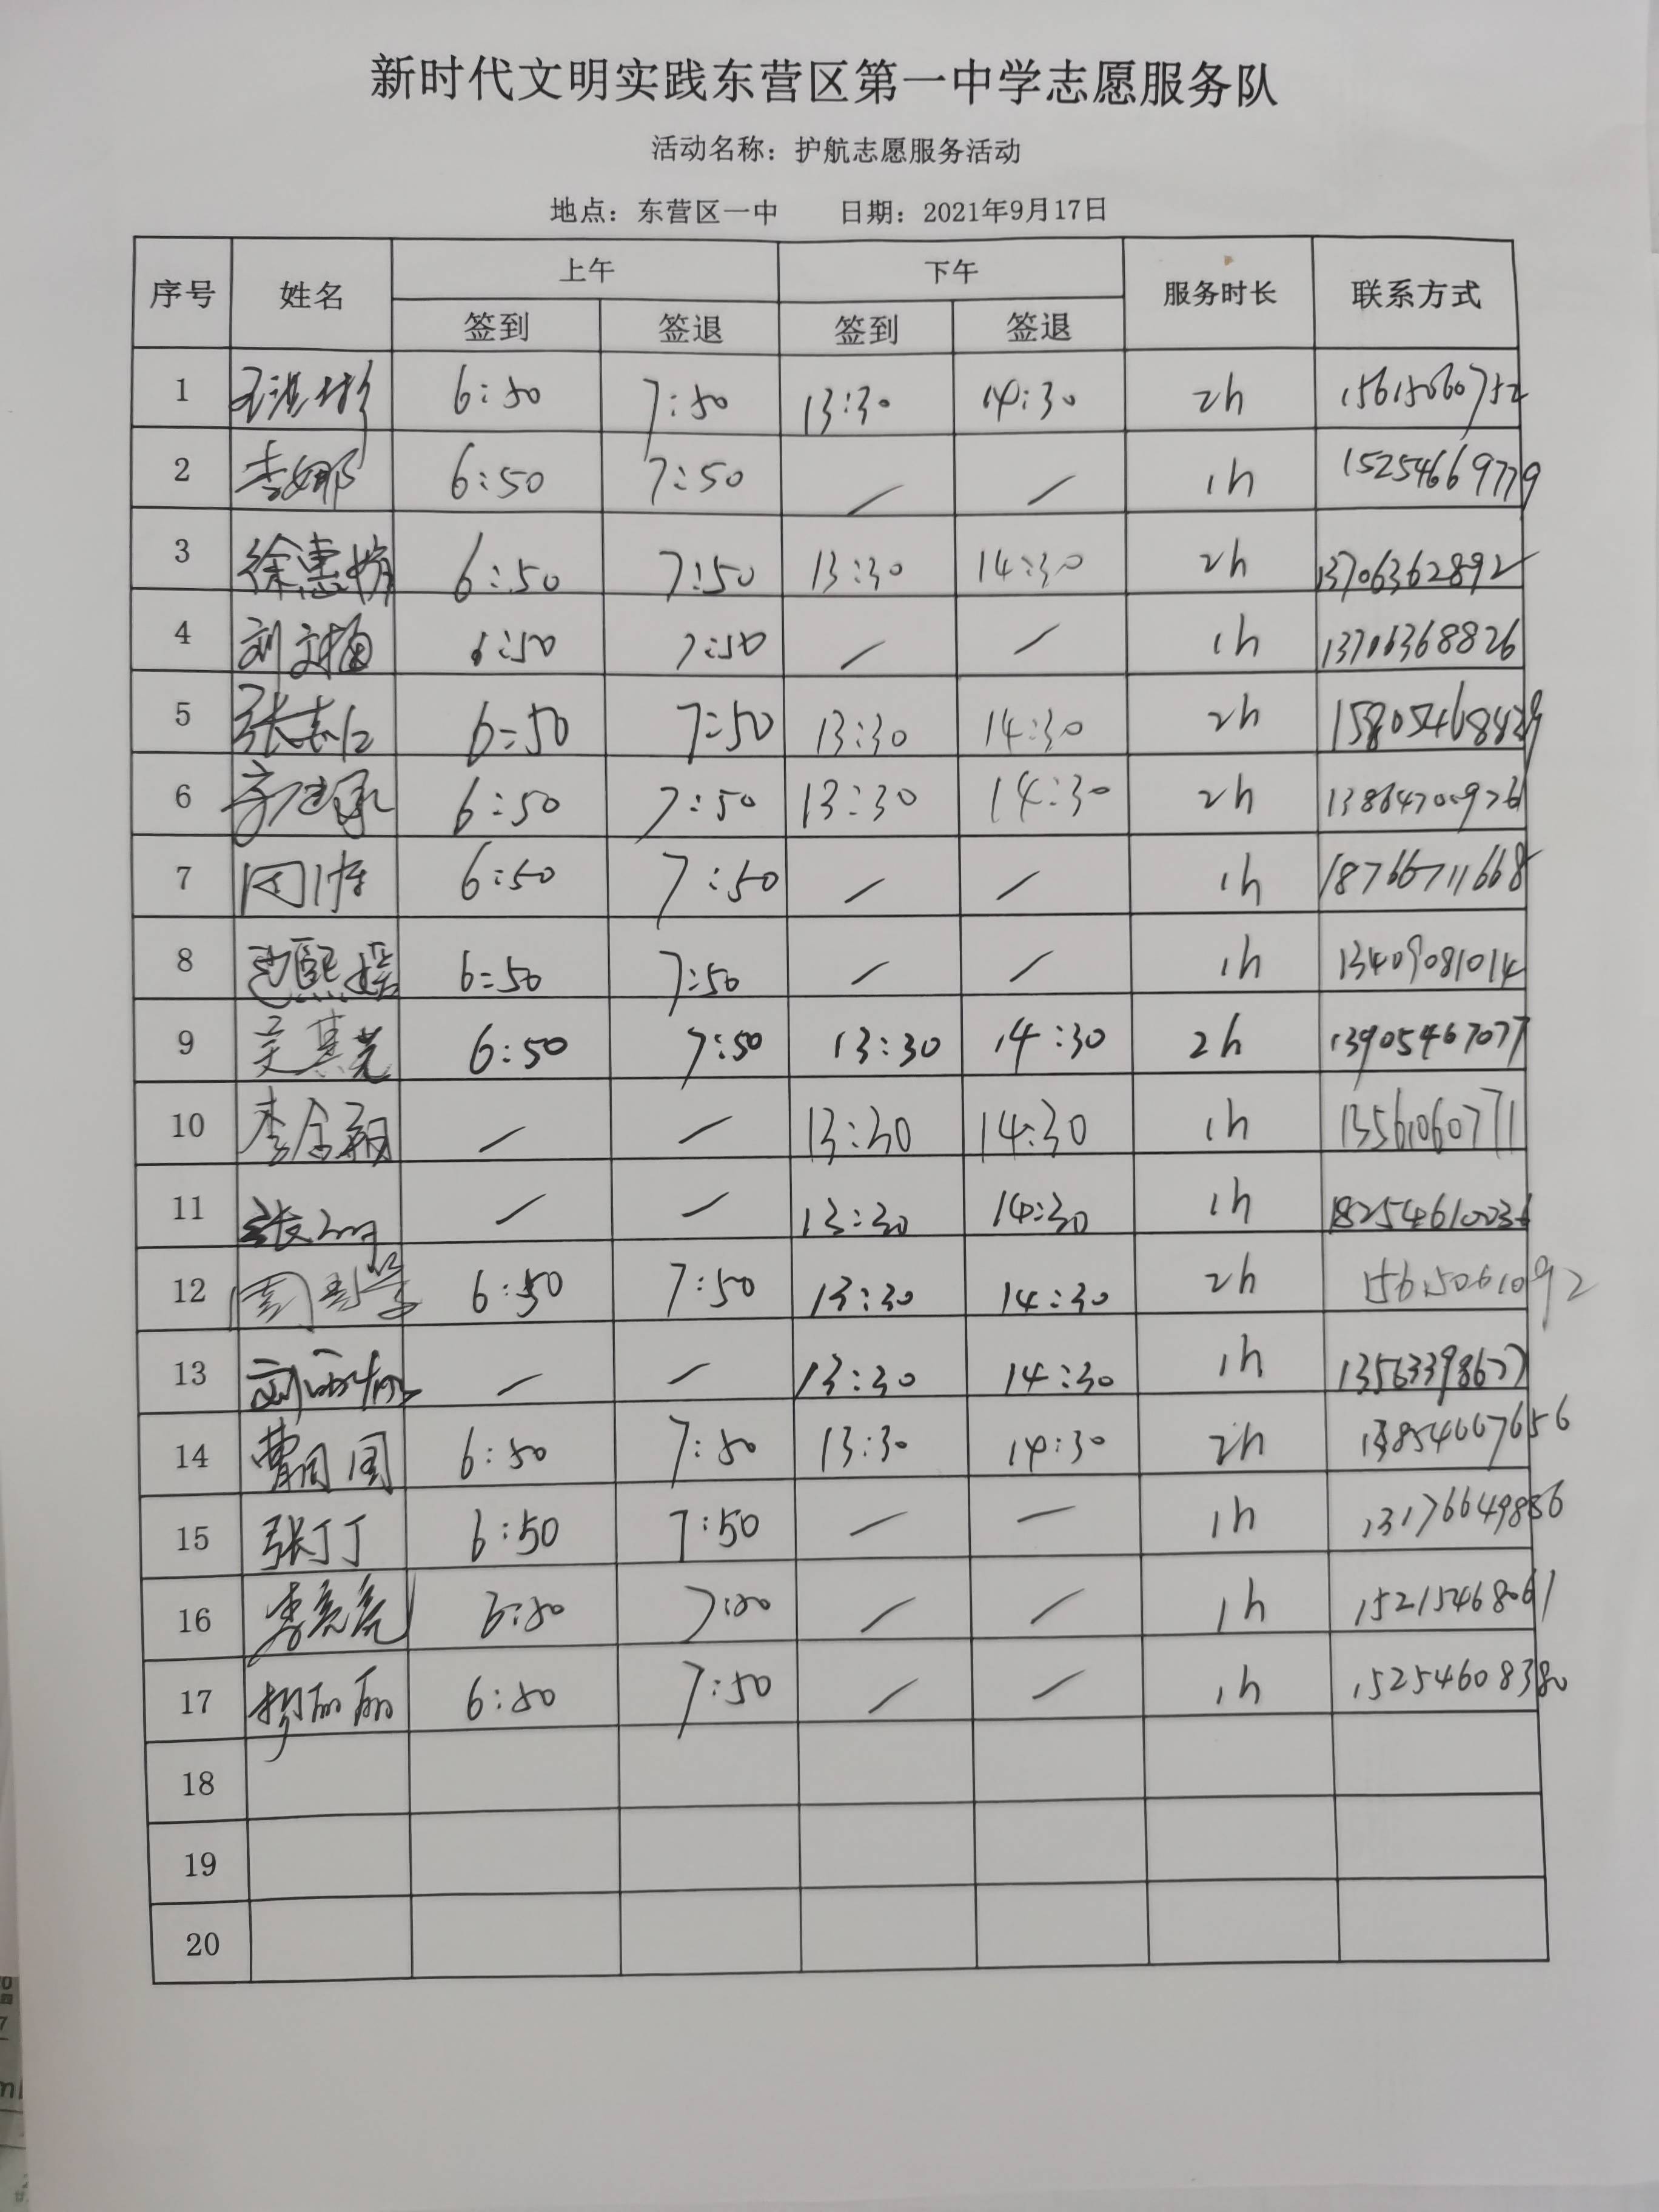 新时代文明实践东营区第一中学志愿服务队
活动名称：护航志愿服务活动
地点：东营区一中 日期：2021年9月17日
序号 姓名 上午 下午 服务时长 联系方式
签到 签退 签到 签退
1 6:50 7:50 13:30 14:30 2h 15615060752
2 李娜 6:50 7:50 / / 1h 15254669779
3 徐惠娟 6:50 7:50 13:30 14:30 2h 13706362892
4 刘文梅 6:50 7:50 / / 1h 13706368826
5 张志仁 6:50 7:50 13:30 14:30 2h
6 6:50 7:50 13:30 14:30 2h
7 周倩 6:50 7:50 / / 1h 18766711668
8 6:50 7:50 / / 1h 13409081014
9 吴其芒 6:50 7:50 13:30 14:30 2h 13905467077
10 / / 13:30 14:30 1h 13561060771
11 / / 13:30 14:30 1h
12 6:50 7:50 13:30 14:30 2h 15615061092
13 / / 13:30 14:30 1h 13563398677
14 6:50 7:50 13:30 14:30 2h
15 张丁丁 6:50 7:50 / / 1h 13176649886
16 李亮亮 6:50 7:50 / / 1h 15215468061
17 杨丽丽 6:50 7:50 / / 1h 15254608380
18
19
20